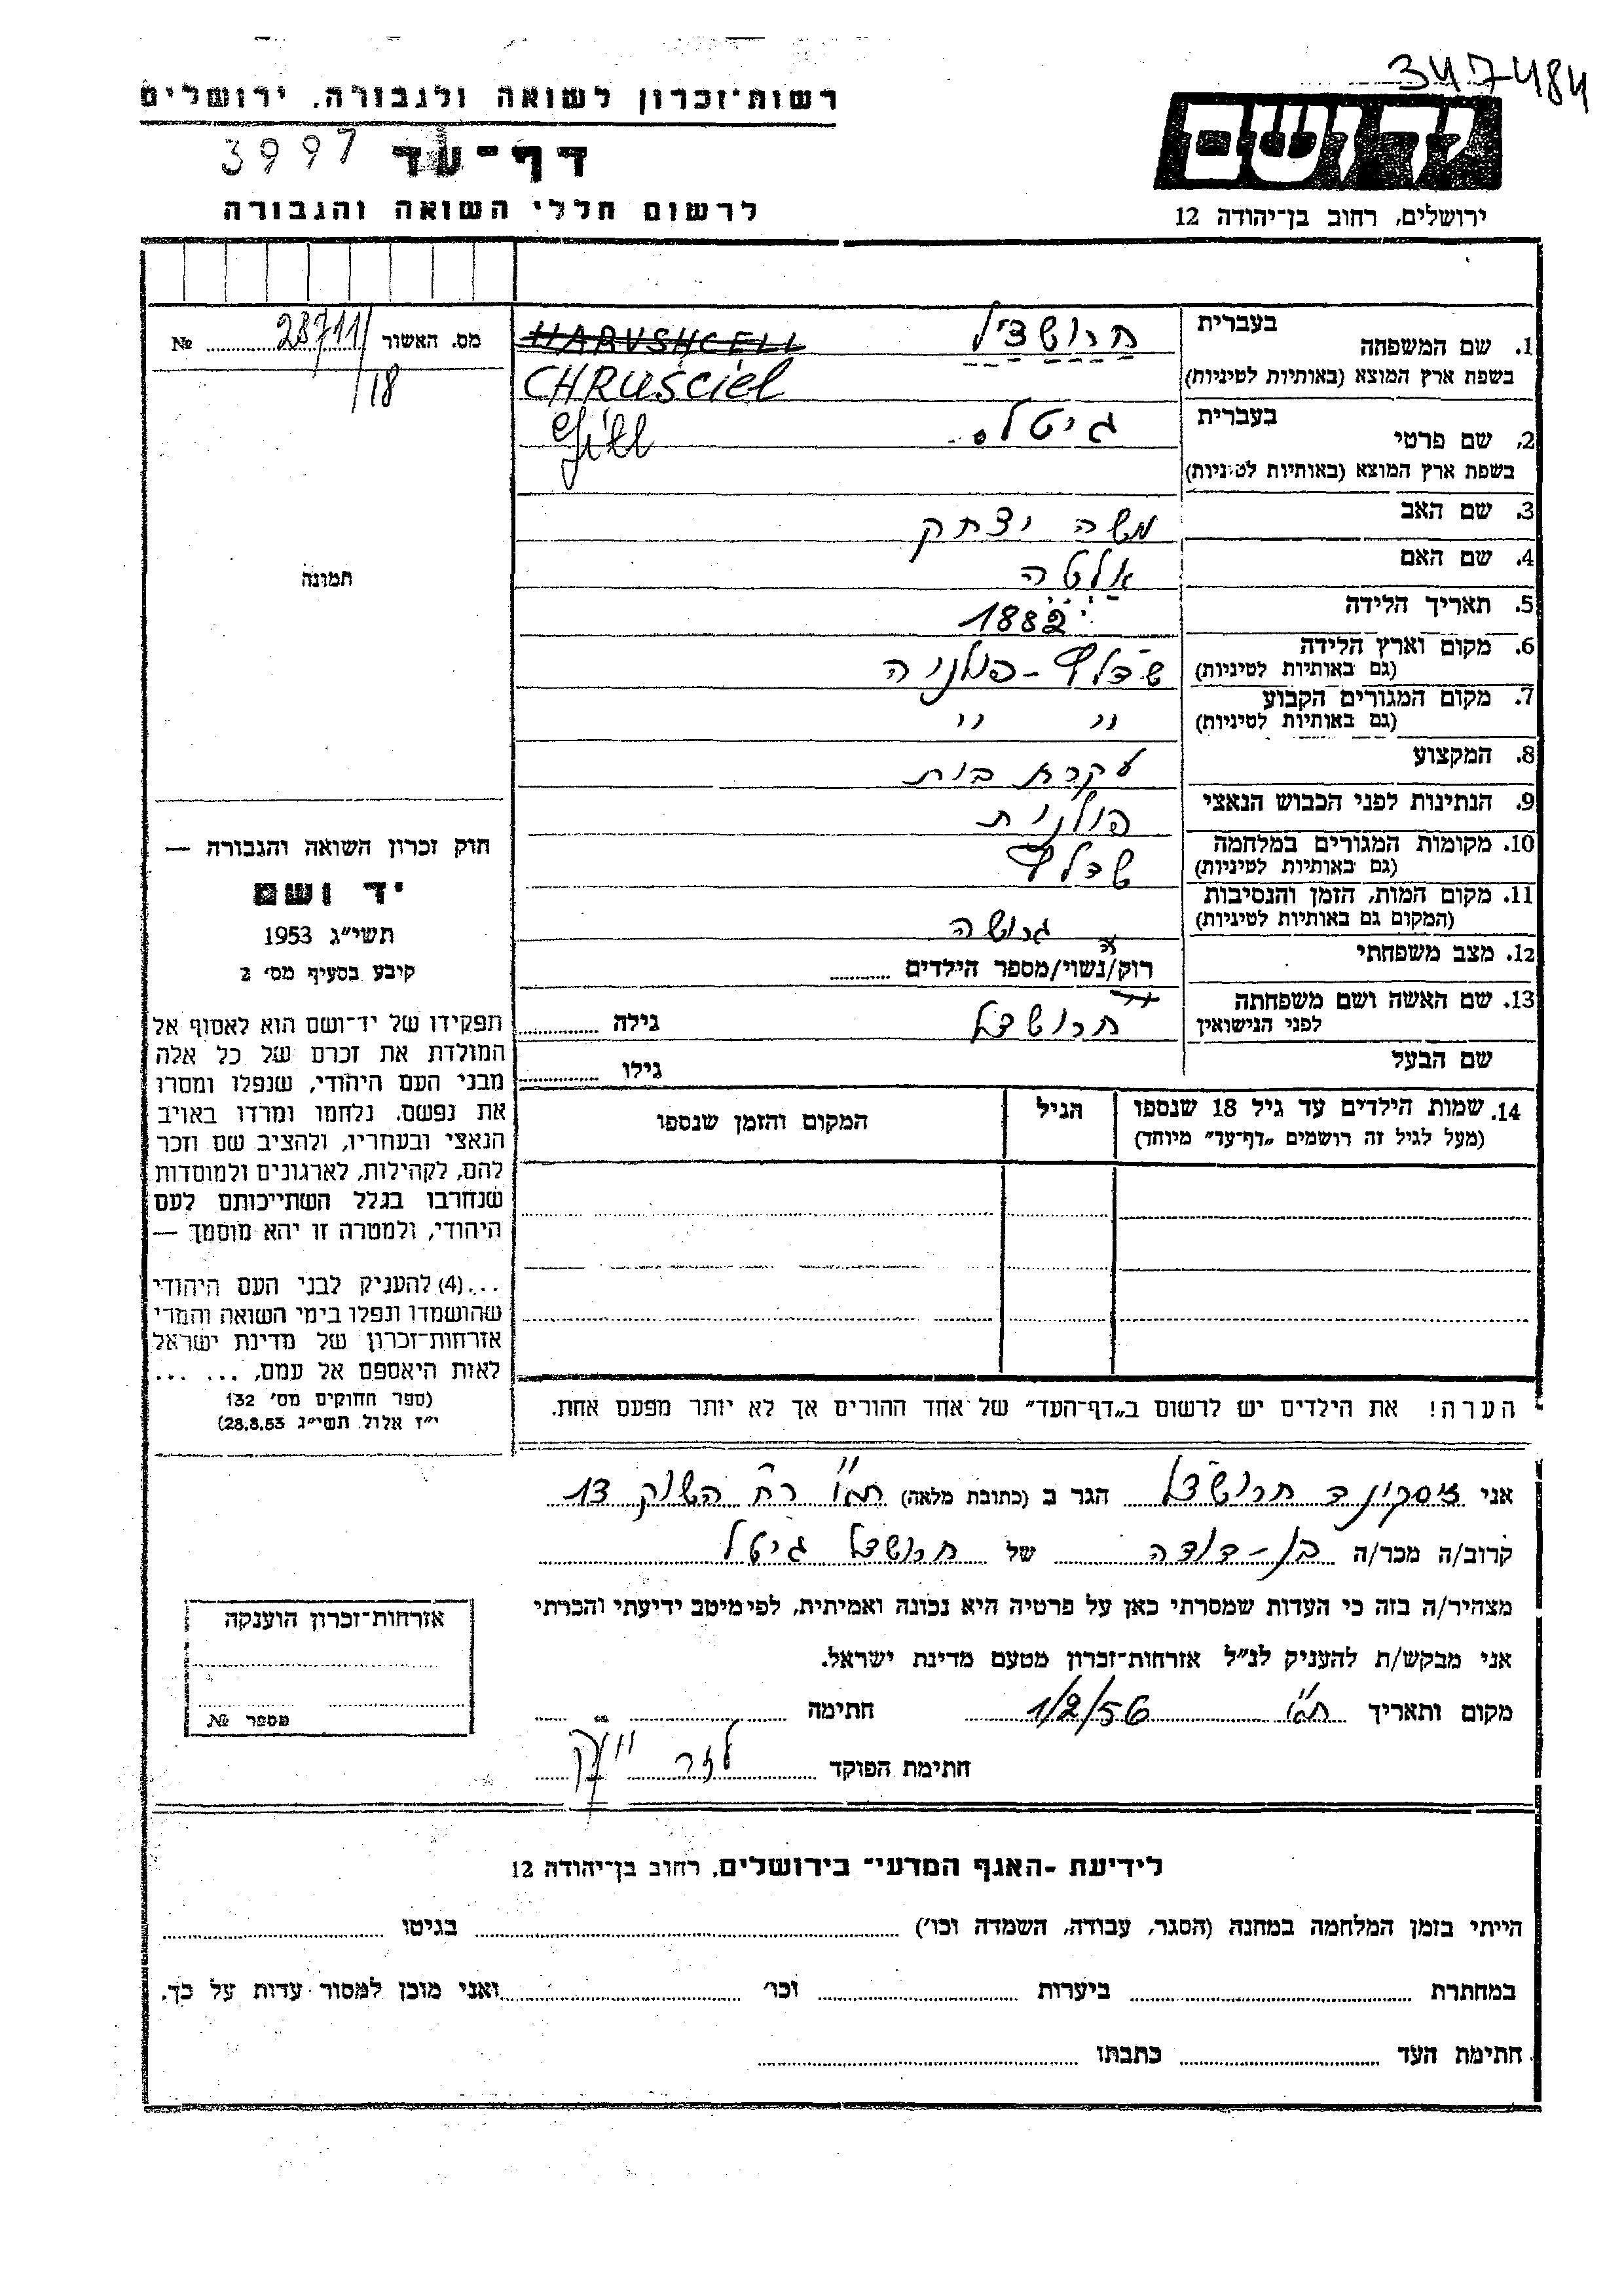 347484
רשות־זכרון לשואה ולגבורה, ירושלים
דף־עד 3997
לרשום חללי השואה והגבורה
יד ושם
ירושלים, רחוב בן־יהודה 12
מס. האשור 28711/18 №
תמונה
חוק זכרון השואה והגבורה —
יד ושם
תשי״ג 1953
קובע בסעיף מס׳ 2
תפקידו של יד־ושם הוא לאסוף אל
המולדת את זכרם של כל אלה
מבני העם היהודי, שנפלו ומסרו
את נפשם, נלחמו ומרדו באויב
הנאצי ובעוזריו, ולהציב שם וזכר
להם, לקהילות, לארגונים ולמוסדות
שנחרבו בגלל השתייכותם לעם
היהודי, ולמטרה זו יהא מוסמך —
...(4) להעניק לבני העם היהודי
שהושמדו ונפלו בימי השואה והמרי
אזרחות־זכרון של מדינת ישראל
לאות היאספם אל עמם, ... ...
(ספר החוקים מס׳ 132
י״ז אלול תשי״ג 28.8.53)
1. שם המשפחה בעברית חרושציל
בשפת ארץ המוצא (באותיות לטיניות) HARUSHCELL
CHRUŚCIEL
2. שם פרטי בעברית גיטל
בשפת ארץ המוצא (באותיות לטיניות)
3. שם האב משה יצחק
4. שם האם אלטה
5. תאריך הלידה 1882
6. מקום וארץ הלידה פולניה
(גם באותיות לטיניות)
7. מקום המגורים הקבוע ״ ״
(גם באותיות לטיניות)
8. המקצוע עקרת בית
9. הנתינות לפני הכבוש הנאצי פולנית
10. מקומות המגורים במלחמה
(גם באותיות לטיניות)
11. מקום המות, הזמן והנסיבות
(המקום גם באותיות לטיניות)
גרושה
12. מצב משפחתי רוק/נשוי/מספר הילדים
13. שם האשה ושם משפחתה
לפני הנישואין
חרושצל גילה
שם הבעל גילו
14. שמות הילדים עד גיל 18 שנספו הגיל המקום והזמן שנספו
(מעל לגיל זה רושמים „דף־עד״ מיוחד)
הערה! את הילדים יש לרשום ב„דף־העד״ של אחד ההורים אך לא יותר מפעם אחת.
אני זיסקינד חרושצל הגר ב (כתובת מלאה) ת״א רח השוק 13
קרוב/ה מכר/ה בן-דודה של חרושצל גיטל
מצהיר/ה בזה כי העדות שמסרתי כאן על פרטיה היא נכונה ואמיתית, לפי מיטב ידיעתי והכרתי
אני מבקש/ת להעניק לנ״ל אזרחות־זכרון מטעם מדינת ישראל.
מקום ותאריך ת״א 1/2/56 חתימה
חתימת הפוקד לזר
אזרחות־זכרון הוענקה
מספר №
לידיעת ־האגף המדעי־ בירושלים, רחוב בן־יהודה 12
הייתי בזמן המלחמה במחנה (הסגר, עבודה, השמדה וכו׳) בגיטו
במחתרת ביערות וכו׳ ואני מוכן למסור עדות על כך.
חתימת העד כתבתו